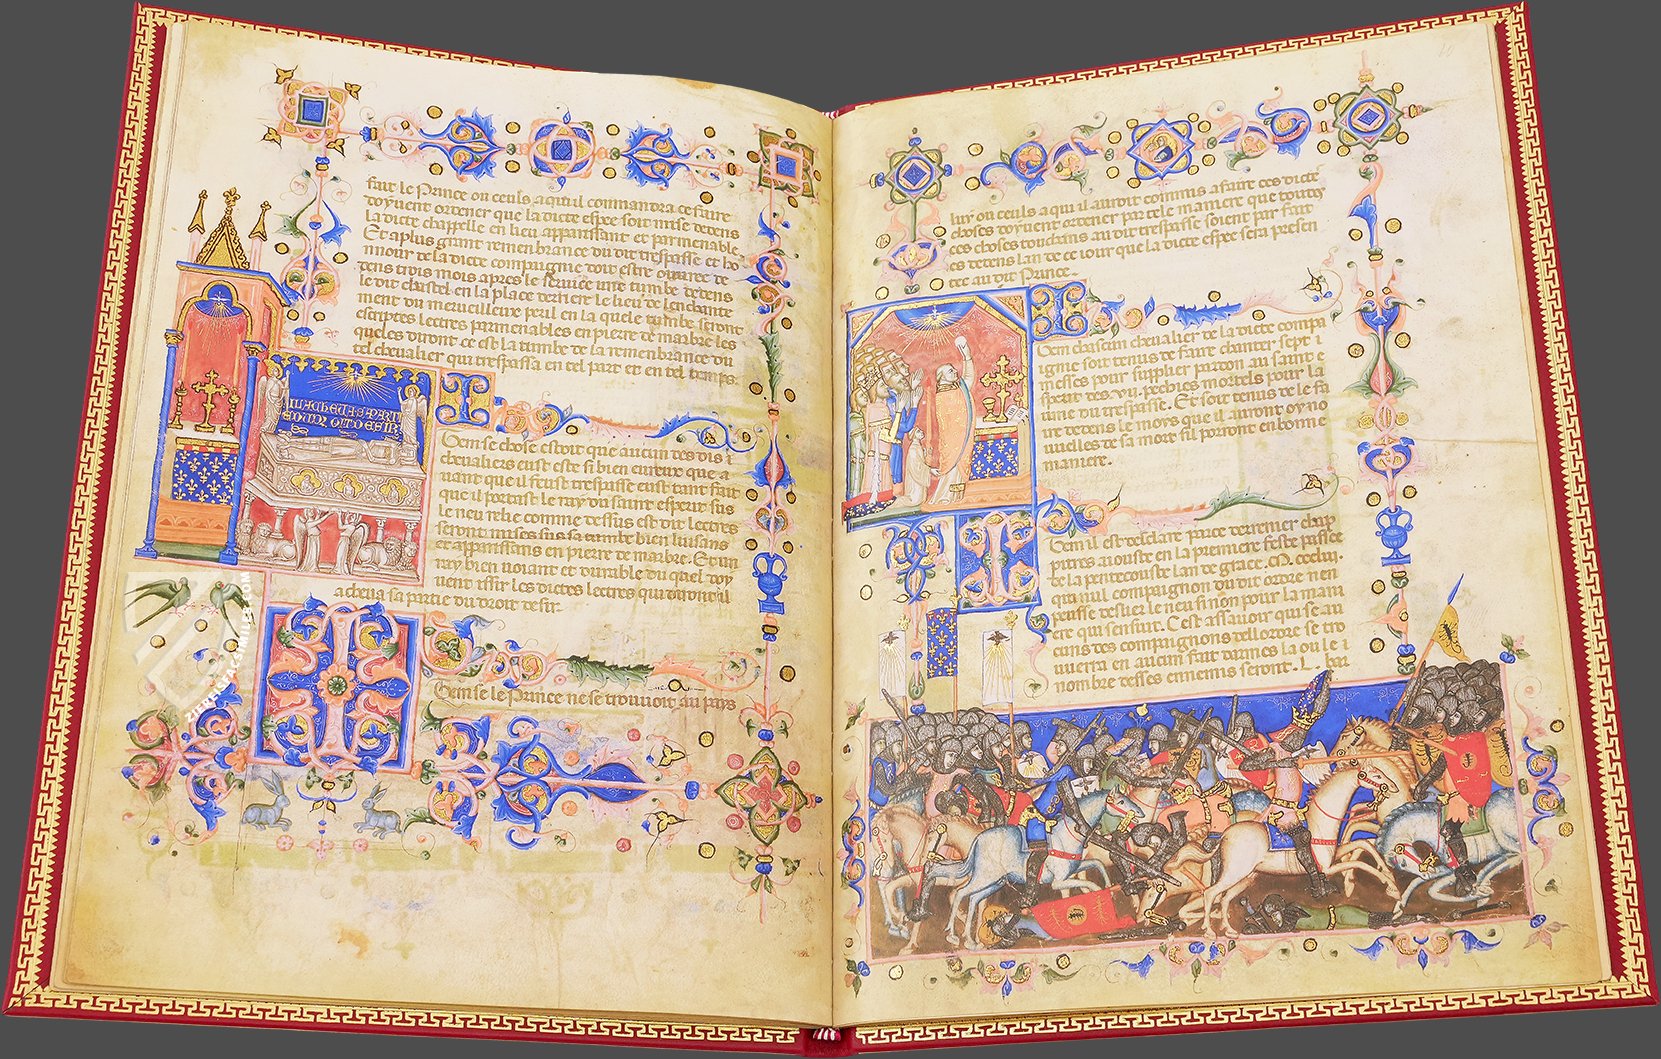 fait le Prince ou ceuls a qui il commandra ce faire
doyuent ordener que la dicte espee soit mise dedens
la dicte chappelle en lieu apparissant et parmenable.
Et a plus grant remembrance du dit trespasse et ho
nnour de la dicte compaignie doit estre ouuree de
dens trois mois apres le seruice une tumbe dedens
le dit chastel en la place derriere le lieu de lenchante
ment du merueilleux peril en la quele tumbe seront
escriptes lectres parmenables en pierre de marbre les
queles diront ce est la tumbe de la remembrance du
tel cheualier qui trespassa en tel part et en tel temps.
IL ACHEVA SA PARTI
E DV DROIT DESIR
Item se chose estoit que aucun des dis
cheualiers eust este si bien eureux que a
uant que il feust trespasse eust tant fait
que il portast le ray du saint esperit sus
le neu relie comme dessus est dit lectres
seront mises sus sa tumbe bien lisans
et apparissans en pierre de marbre. Et un
ray bien uoiant et durable du quel doy
uent issir les dictes lectres qui diront il
acheua sa partie du droit desir.
Item se le Prince ne se trouuoit au pays
luy ou ceuls a qui il auroit commis a faire ces dictes
choses doyuent ordener par tele maniere que toutes
ces choses touchans au dit trespasse soient par fait
es dedens lan de ce iour que la dicte espee sera presen
tee au dit Prince.
Item chascun cheualier de la dicte compa
ignie soit tenus de faire chanter sept
messes pour supplier pardon au saint e
sperit des .vii. pechies mortels pour la
ame du trespasse. Et soit tenus de le fa
ire dedens le moys que il auront oy no
uuelles de sa mort sil porront en bonne
maniere.
Item il est declare par ce derrenier chap
pitre aiouste en la premiere feste passee
de la pentecouste lan de grace .M. ccc
que nul compaignon du dit ordre nen
peusse deslier le neu si non pour la mani
ere qui sensuit. Cest assauoir qui se au
cuns des compaignons de lordre se tro
uuera en aucun fait darmes la ou le
nombre desses ennemis seront .L. bar
ZIEREIS FACSIMILES.COM